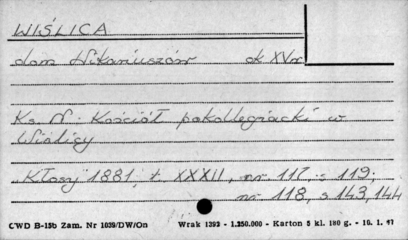 WIŚLICA
dom Wikariuszów ok XVw
Ks. N. Kościół pokollegiacki w
Wiślicy
"Kłosy" 1881, t. XXXII, nr. 117, s 119.
nr. 118, s 143, 144
CWD B-15b Zam. Nr 1039/DW/On Wrak 1392 - 1.250.000 - Karton 5 kl. 180 g. - 16. 1. 47